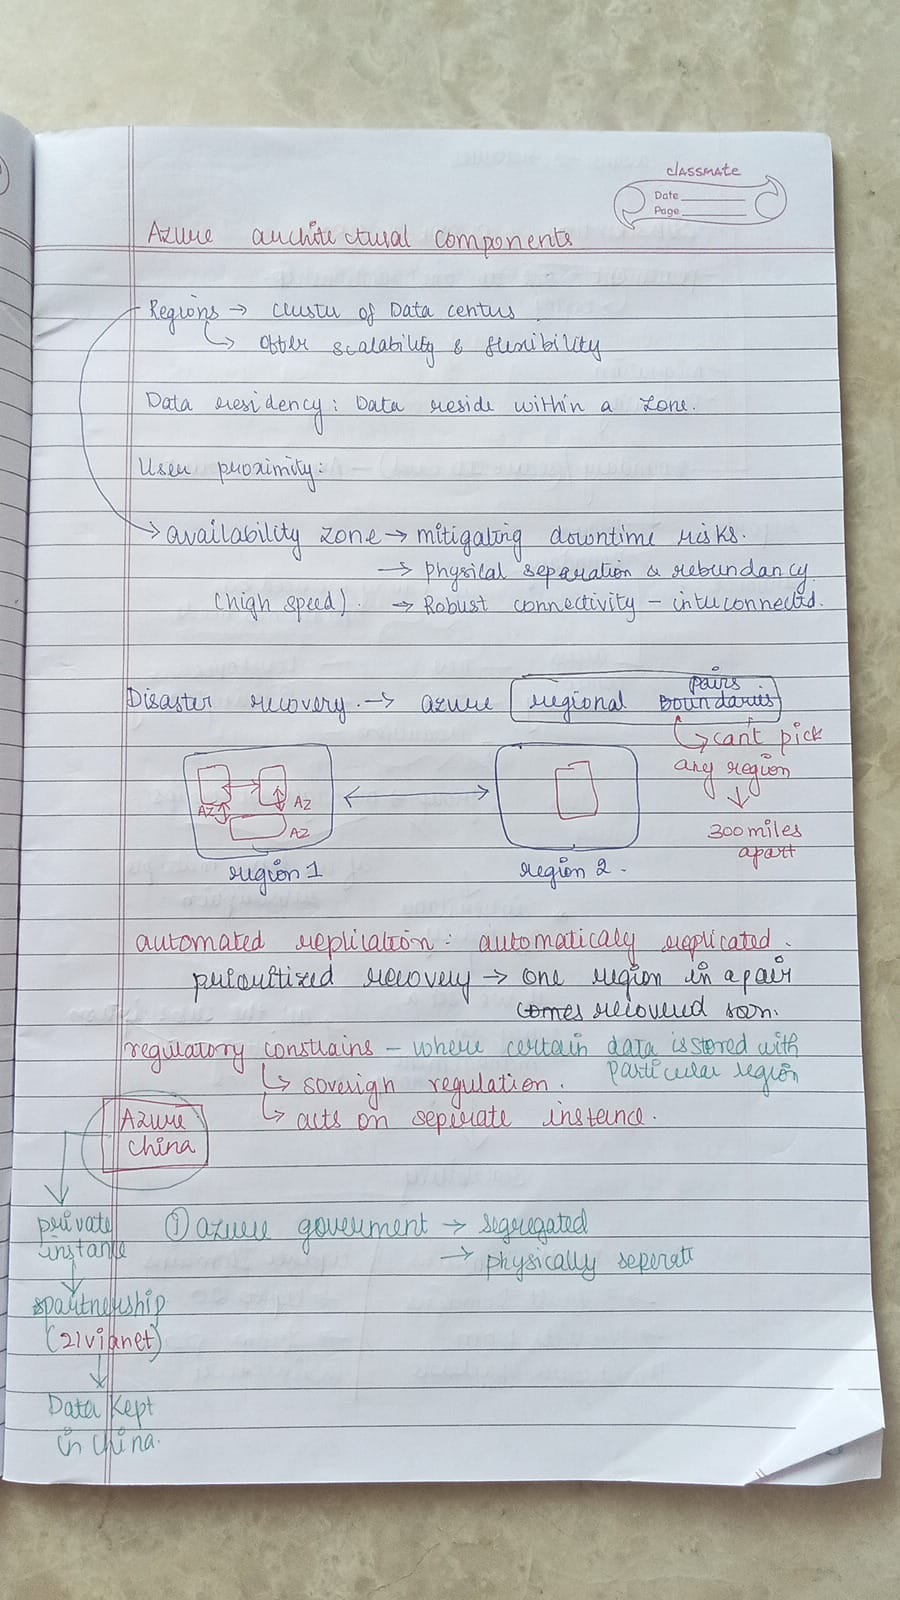 classmate
Date
Page
Azure architectural components
Regions → cluster of Data centers
↳ offer scalability & flexibility
Data residency: Data reside within a zone.
User proximity:
→ availability zone → mitigating downtime risks.
→ physical separation & rebundancy
(high speed). → Robust connectivity – interconnected.
pairs
Disaster recovery. → azure regional boundaries
↳ can't pick
any region
↓
300 miles
apart
AZ AZ
AZ
region 1 region 2.
automated replication: automaticaly replicated.
prioritized recovery → one region in a pair
comes recovered soon.
regulatory constrains – where certain data is stored with
particular region
↳ soverign regulation.
↳ acts on seperate instance.
Azure
China
private
instance
① azure goverment → segregated
→ physically seperate
partnership
(21vianet)
Data kept
in China.